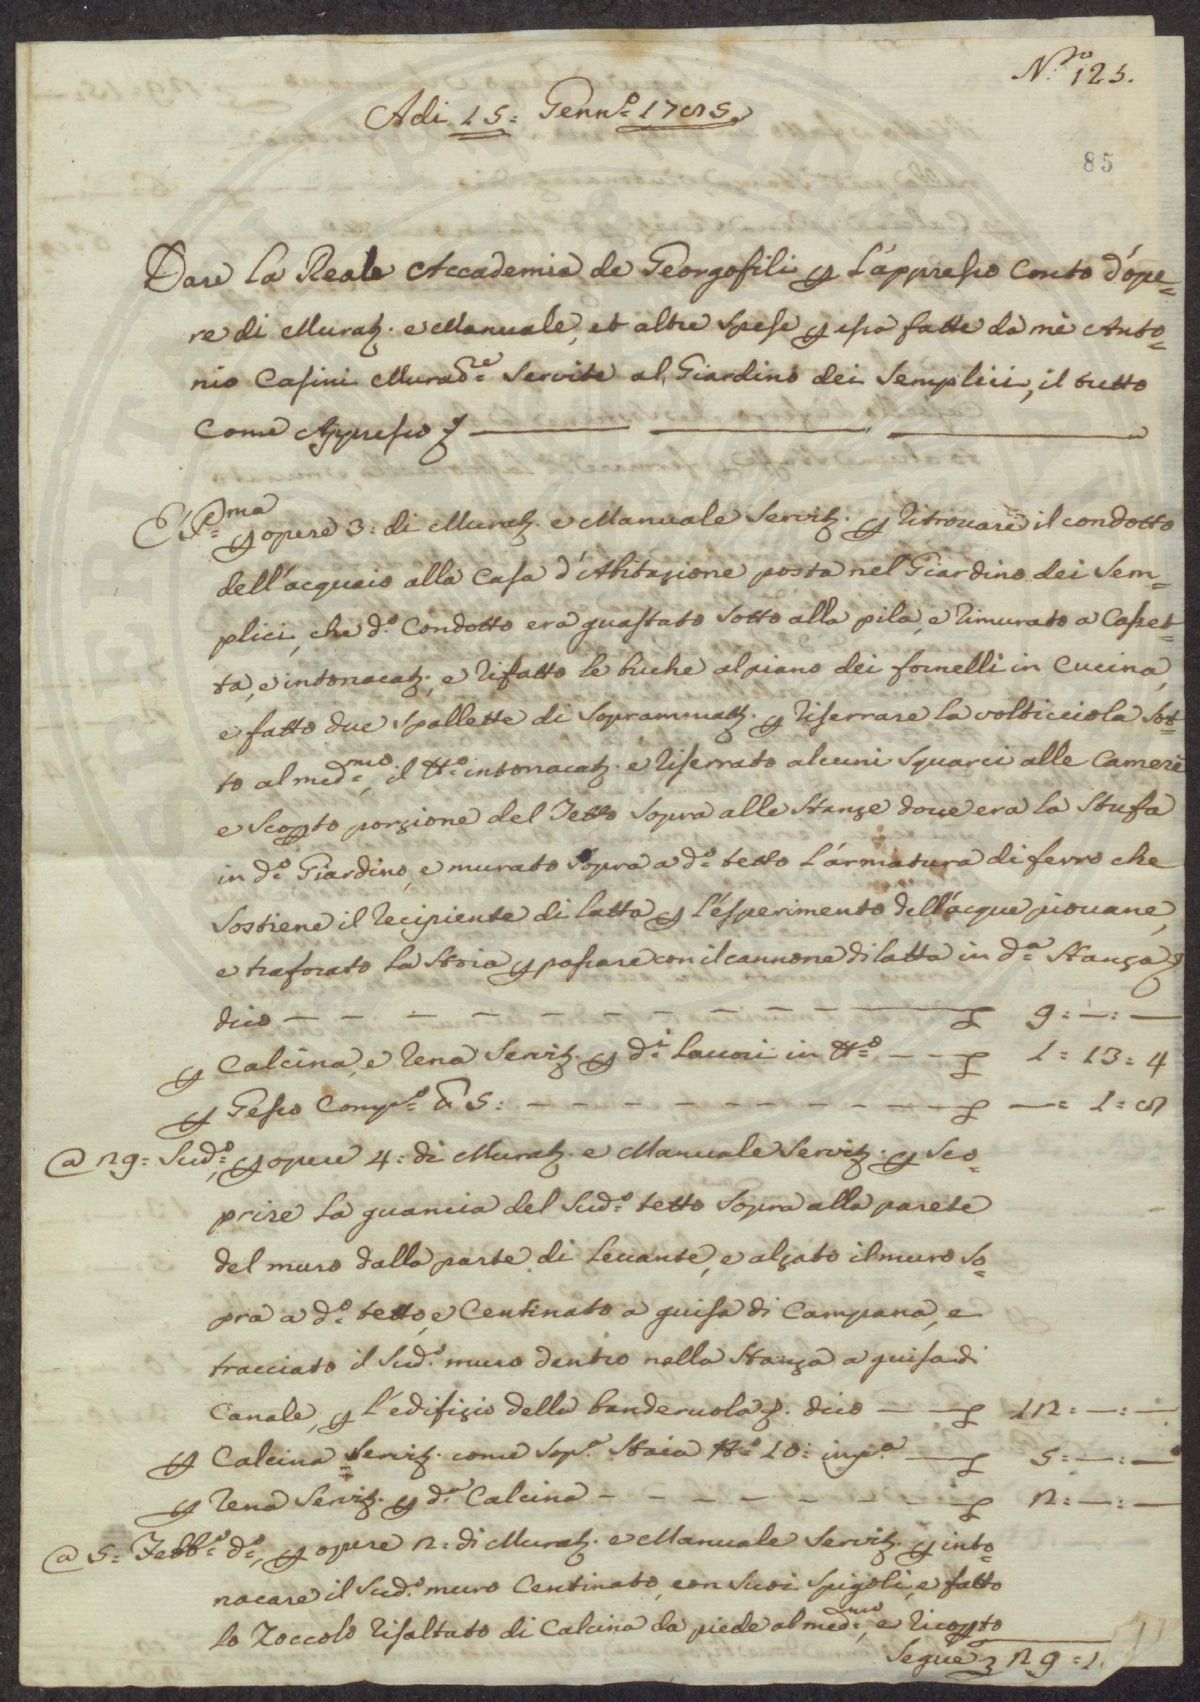 N.ro 125.
Adi 15: Genn.o 1785.
85
Dare la Reale Accademia de Georgofili p l'appresso Conto d'ope=
re di Murat.e e Manuale, et altre Spese p essa fatte da mè Anto=
nio Casini Murad.re Servite al Giardino dei Semplici, il tutto
Come Appresso p
E P.ma p opere 3: di Murat.e e Manuale Servit.e p ritrovare il condotto
dell'acquaio alla Casa d'Abitazione posta nel Giardino dei Sem=
plici, che d.o Condotto era guastato sotto alla pila, e rimurato a Casset=
ta, e intonacat.e, e rifatto le buche al piano dei fornelli in Cucina,
e fatto due Spallette di Soprammatt.e p riserrare la volticciola Sot=
to al med.mo, il tt.o intonacat.e e riserrato alcuni Squarci alle Camere
e Scopto porzione del Tetto Sopra alle Stanze dove era la Stufa
in d.o Giardino, e murato Sopra a d.o tetto l'armatura di ferro che
Sostiene il recipiente di latta p l'esperimento dell'acque piovane,
e traforato la Stoia p passare con il cannone di latta in d.a Stanza p
dico — — — — — — — — £ 9: —: —
p Calcina, e rena Servit.e p d.i lavori in tt.o — — £ 1: 13: 4
p Gesso Comp.o lb 5: — — — — — — £ —: 1: 8
@ 29: Sud.o, p opere 4: di Murat.e e Manuale Servit.e p Sco=
prire la guancia del Sud.o tetto Sopra alla parete
del muro dalla parte di Levante, e alzato il muro So=
pra a d.o tetto, e Centinato a guisa di Campana, e
tracciato il Sud.o muro dentro nella Stanza a guisa di
Canale, p l'edifizio della banderuola p. dico — — £ 12: —: —
p Calcina Servit.e come Sop.a Staia tt.o 10: in p.a — £ 5: —: —
p rena Servit.e p d.a Calcina — — — — — £ 2: —: —
@ 5: Febb.o d.o, p opere 2: di Murat.e e Manuale Servit.e p into=
nacare il Sud.o muro Centinato, con Suoi Spigoli, e fatto
lo Zoccolo risaltato di Calcina da piede al med.mo, e ricopto
Segue £ 29: 1.